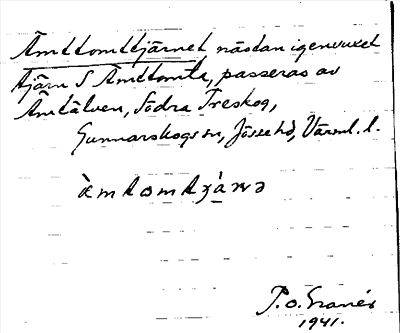 Åmttomttjärnet nästan igenvuxet
tjärn S Åmttomta, passeras av
Åmtälven, Södra Treskog,
Gunnarskogs sn, Jösse hd, Värml. l.
P.O. Granér
1941.